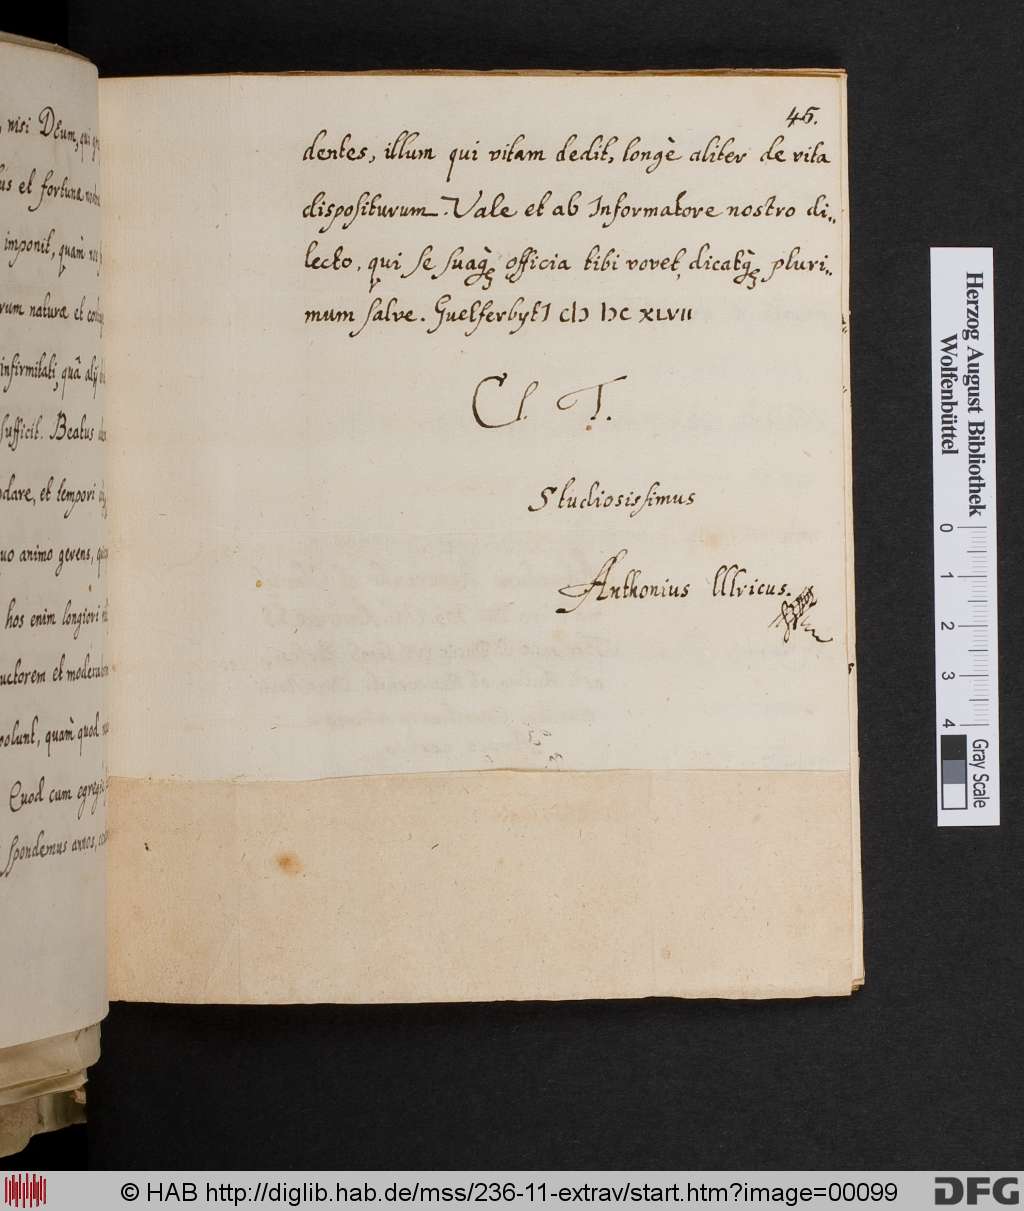 nisi DEum, qui
et fortunæ
imponit, quàm
rum naturæ et
infirmitati, quâ alij
sufficit. Beatus
dare, et tempori
uo animo gerens,
hos enim longiori
uctorem et
volunt, quàm quod
Quod cum
spondemus annos,
46.
dentes, illum qui vitam dedit, longè aliter de vita
dispositurum. Vale et ab Informatore nostro di„
lecto, qui se suaq́ꝫ officia tibi vovet, dicatq́ꝫ pluri„
mum salve. Guelferbyti CIↃ IↃC XLVII
Cl. T.
Studiosissimus
Anthonius Ulricus.
Herzog August Bibliothek
Wolfenbüttel
0 1 2 3 4
Gray Scale
© HAB http://diglib.hab.de/mss/236-11-extrav/start.htm?image=00099
DFG